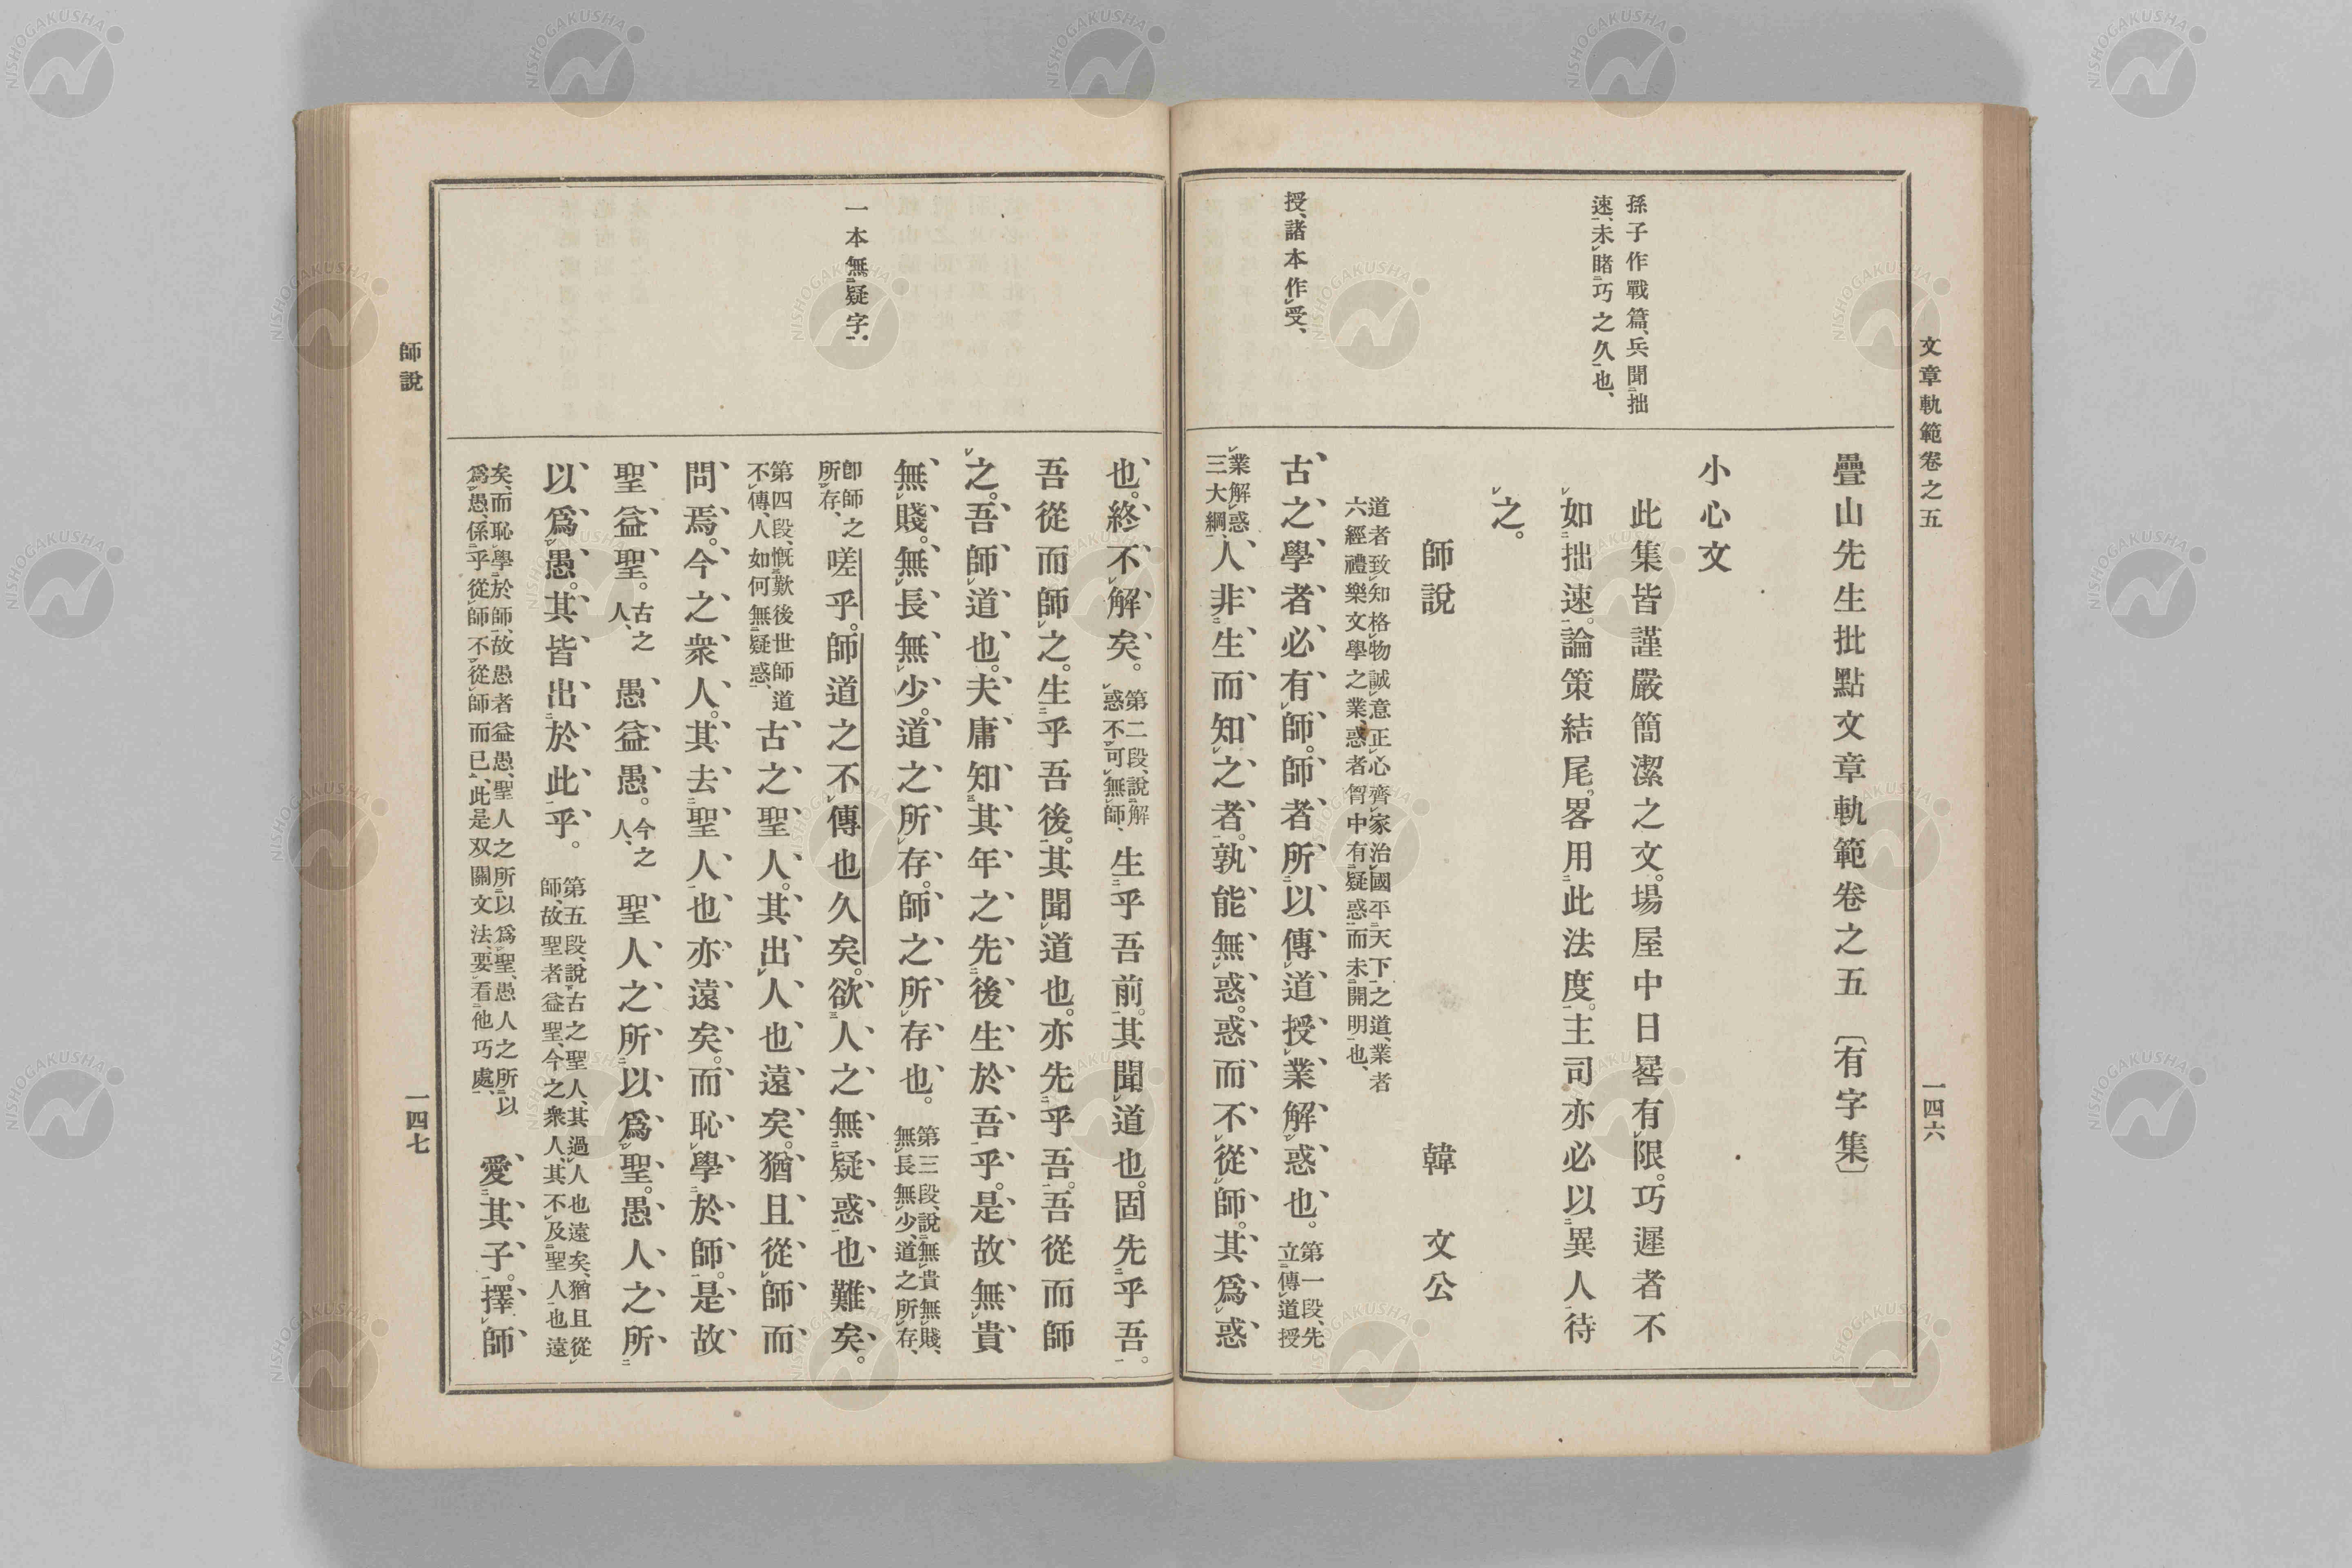 文章軌範卷之五
一四六
孫子作戰篇、兵聞拙
速、未睹巧之久也、
授、諸本作受、
疊山先生批點文章軌範卷之五〔有字集〕
小心文
此集皆謹嚴簡潔之文。場屋中日晷有限。巧遲者不
如拙速。論策結尾。畧用此法度。主司亦必以異人待
之。
師說 韓文公
道者致知格物誠意正心齊家治國平天下之道、業者
六經禮樂文學之業、惑者胷中有疑惑而未開明也、
古之學者必有師。師者所以傳道授業解惑也。第一段、先
立傳道授
業解惑
三大綱、人非生而知之者。孰能無惑。惑而不從師。其爲惑
一本無疑字。
也。終不解矣。第二段、說解
惑不可無師、生乎吾前。其聞道也。固先乎吾。
吾從而師之。生乎吾後。其聞道也。亦先乎吾。吾從而師
之。吾師道也。夫庸知其年之先後生於吾乎。是故無貴
無賤。無長無少。道之所存。師之所存也。第三段、說無貴無賤、
無長無少、道之所存、
卽師之
所存、嗟乎。師道之不傳也久矣。欲人之無疑惑也難矣。
第四段、慨歎後世師道
不傳、人如何無疑惑、古之聖人。其出人也遠矣。猶且從師而
問焉。今之衆人。其去聖人也亦遠矣。而恥學於師。是故
聖益聖。古之
人、愚益愚。今之
人、聖人之所以爲聖。愚人之所
以爲愚。其皆出於此乎。第五段、說古之聖人、其過人也遠矣、猶且從
師、故聖者益聖、今之衆人、其不及聖人也遠
矣、而恥學於師、故愚者益愚、聖人之所以爲聖、愚人之所以
爲愚、係乎從師不從師而已、此是双關文法、要看他巧處、愛其子。擇師
師說
一四七
NISHOGAKUSHA